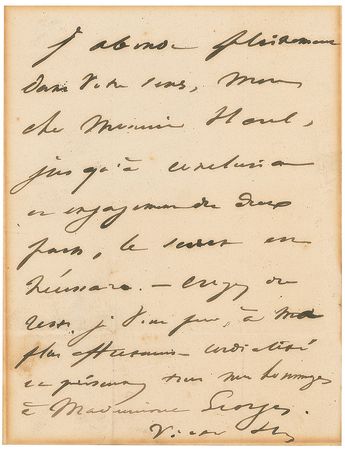 J'abonde pleinement
dans votre sens, mon
cher Monsieur Harel,
jusqu'à conclusion
et engagement des deux
parts, le secret est
nécessaire. — Croyez du
reste, je vous prie, à ma
plus affectueuse cordialité
et présentez tous mes hommages
à Mademoiselle Georges.
Victor Hugo